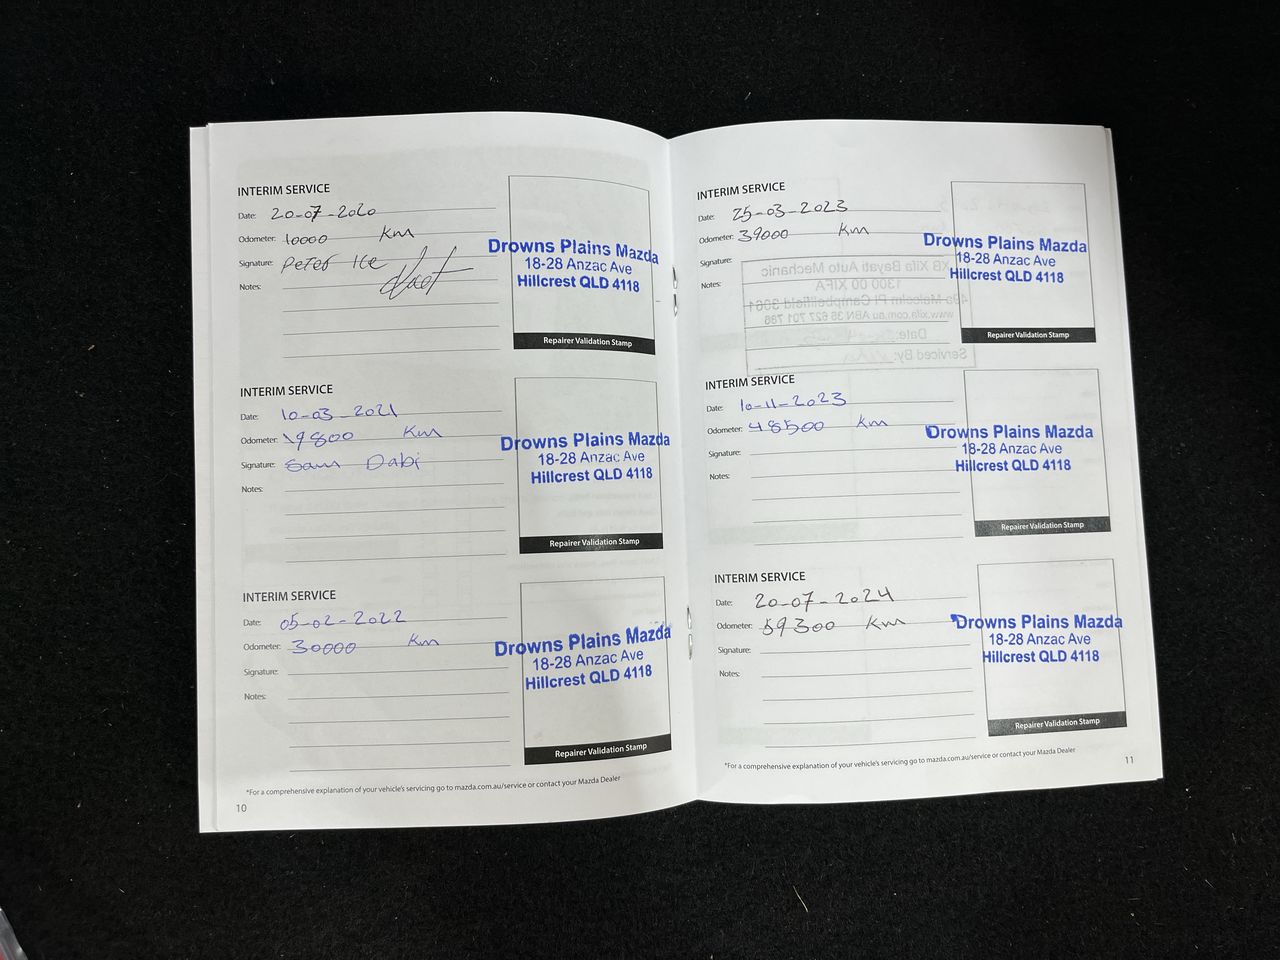 INTERIM SERVICE
Date: 20-07-2020
Odometer: 10000 Km
Signature: Peter Ice
Notes:
Drowns Plains Mazda
18-28 Anzac Ave
Hillcrest QLD 4118
Repairer Validation Stamp
INTERIM SERVICE
Date: 10-03-2021
Odometer: 19800 Km
Signature: Sam Dabi
Notes:
Drowns Plains Mazda
18-28 Anzac Ave
Hillcrest QLD 4118
Repairer Validation Stamp
INTERIM SERVICE
Date: 05-02-2022
Odometer: 30000 Km
Signature:
Notes:
Drowns Plains Mazda
18-28 Anzac Ave
Hillcrest QLD 4118
Repairer Validation Stamp
*For a comprehensive explanation of your vehicle's servicing go to mazda.com.au/service or contact your Mazda Dealer
10
INTERIM SERVICE
Date: 25-03-2023
Odometer: 39000 Km
Signature:
Notes:
Drowns Plains Mazda
18-28 Anzac Ave
Hillcrest QLD 4118
Repairer Validation Stamp
XB Xifa Bayati Auto Mechanic
1300 00 XIFA
www.xifa.com.au ABN 36 627 701 786
Date:
Serviced By:
INTERIM SERVICE
Date: 10-11-2023
Odometer: 48500 Km
Signature:
Notes:
Drowns Plains Mazda
18-28 Anzac Ave
Hillcrest QLD 4118
Repairer Validation Stamp
INTERIM SERVICE
Date: 20-07-2024
Odometer: 59300 Km
Signature:
Notes:
Drowns Plains Mazda
18-28 Anzac Ave
Hillcrest QLD 4118
Repairer Validation Stamp
*For a comprehensive explanation of your vehicle's servicing go to mazda.com.au/service or contact your Mazda Dealer
11